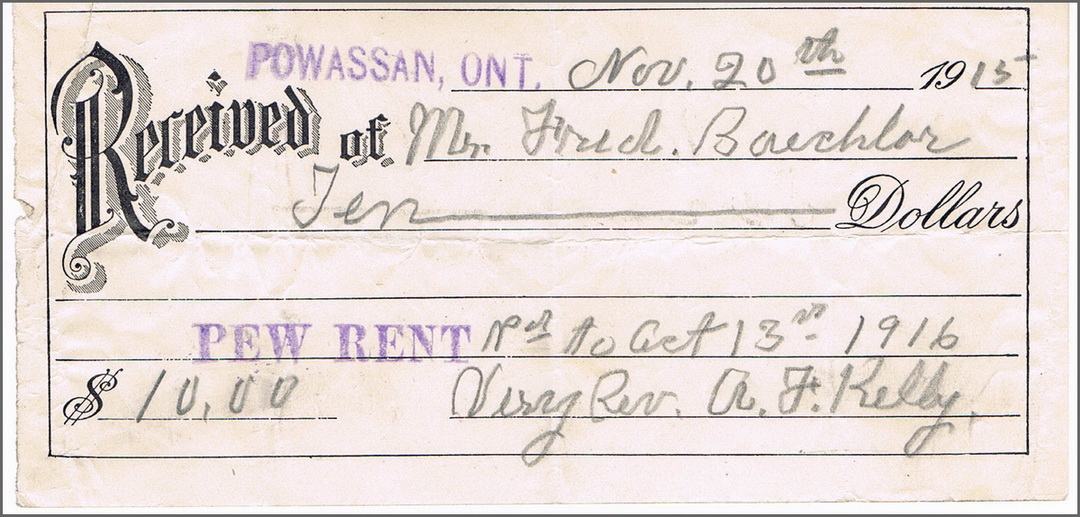 POWASSAN, ONT. Nov. 20th 1915
Received of Mr. Fred. Baechlor
Ten Dollars
PEW RENT Pd to Oct 13rd 1916
$ 10.00 Very Rev. A. F. Kelly.